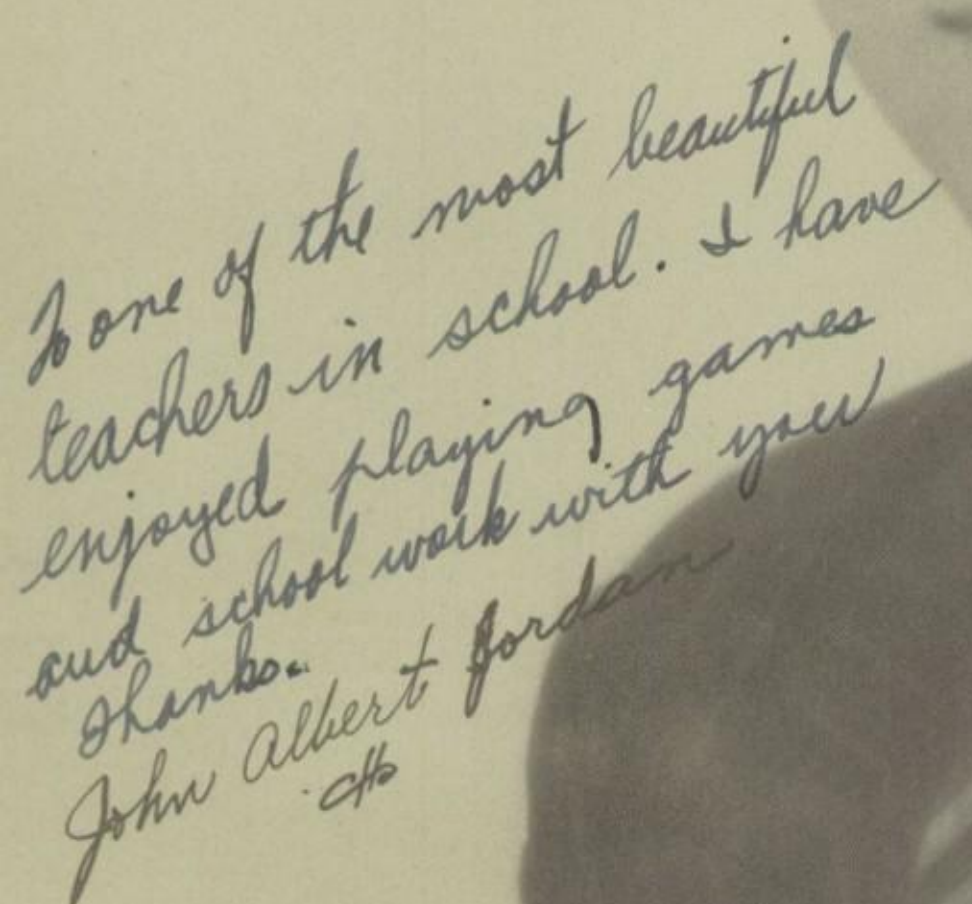 To one of the most beautiful
teachers in school. I have
enjoyed playing games
and school work with you
Thanks.
John Albert Jordan